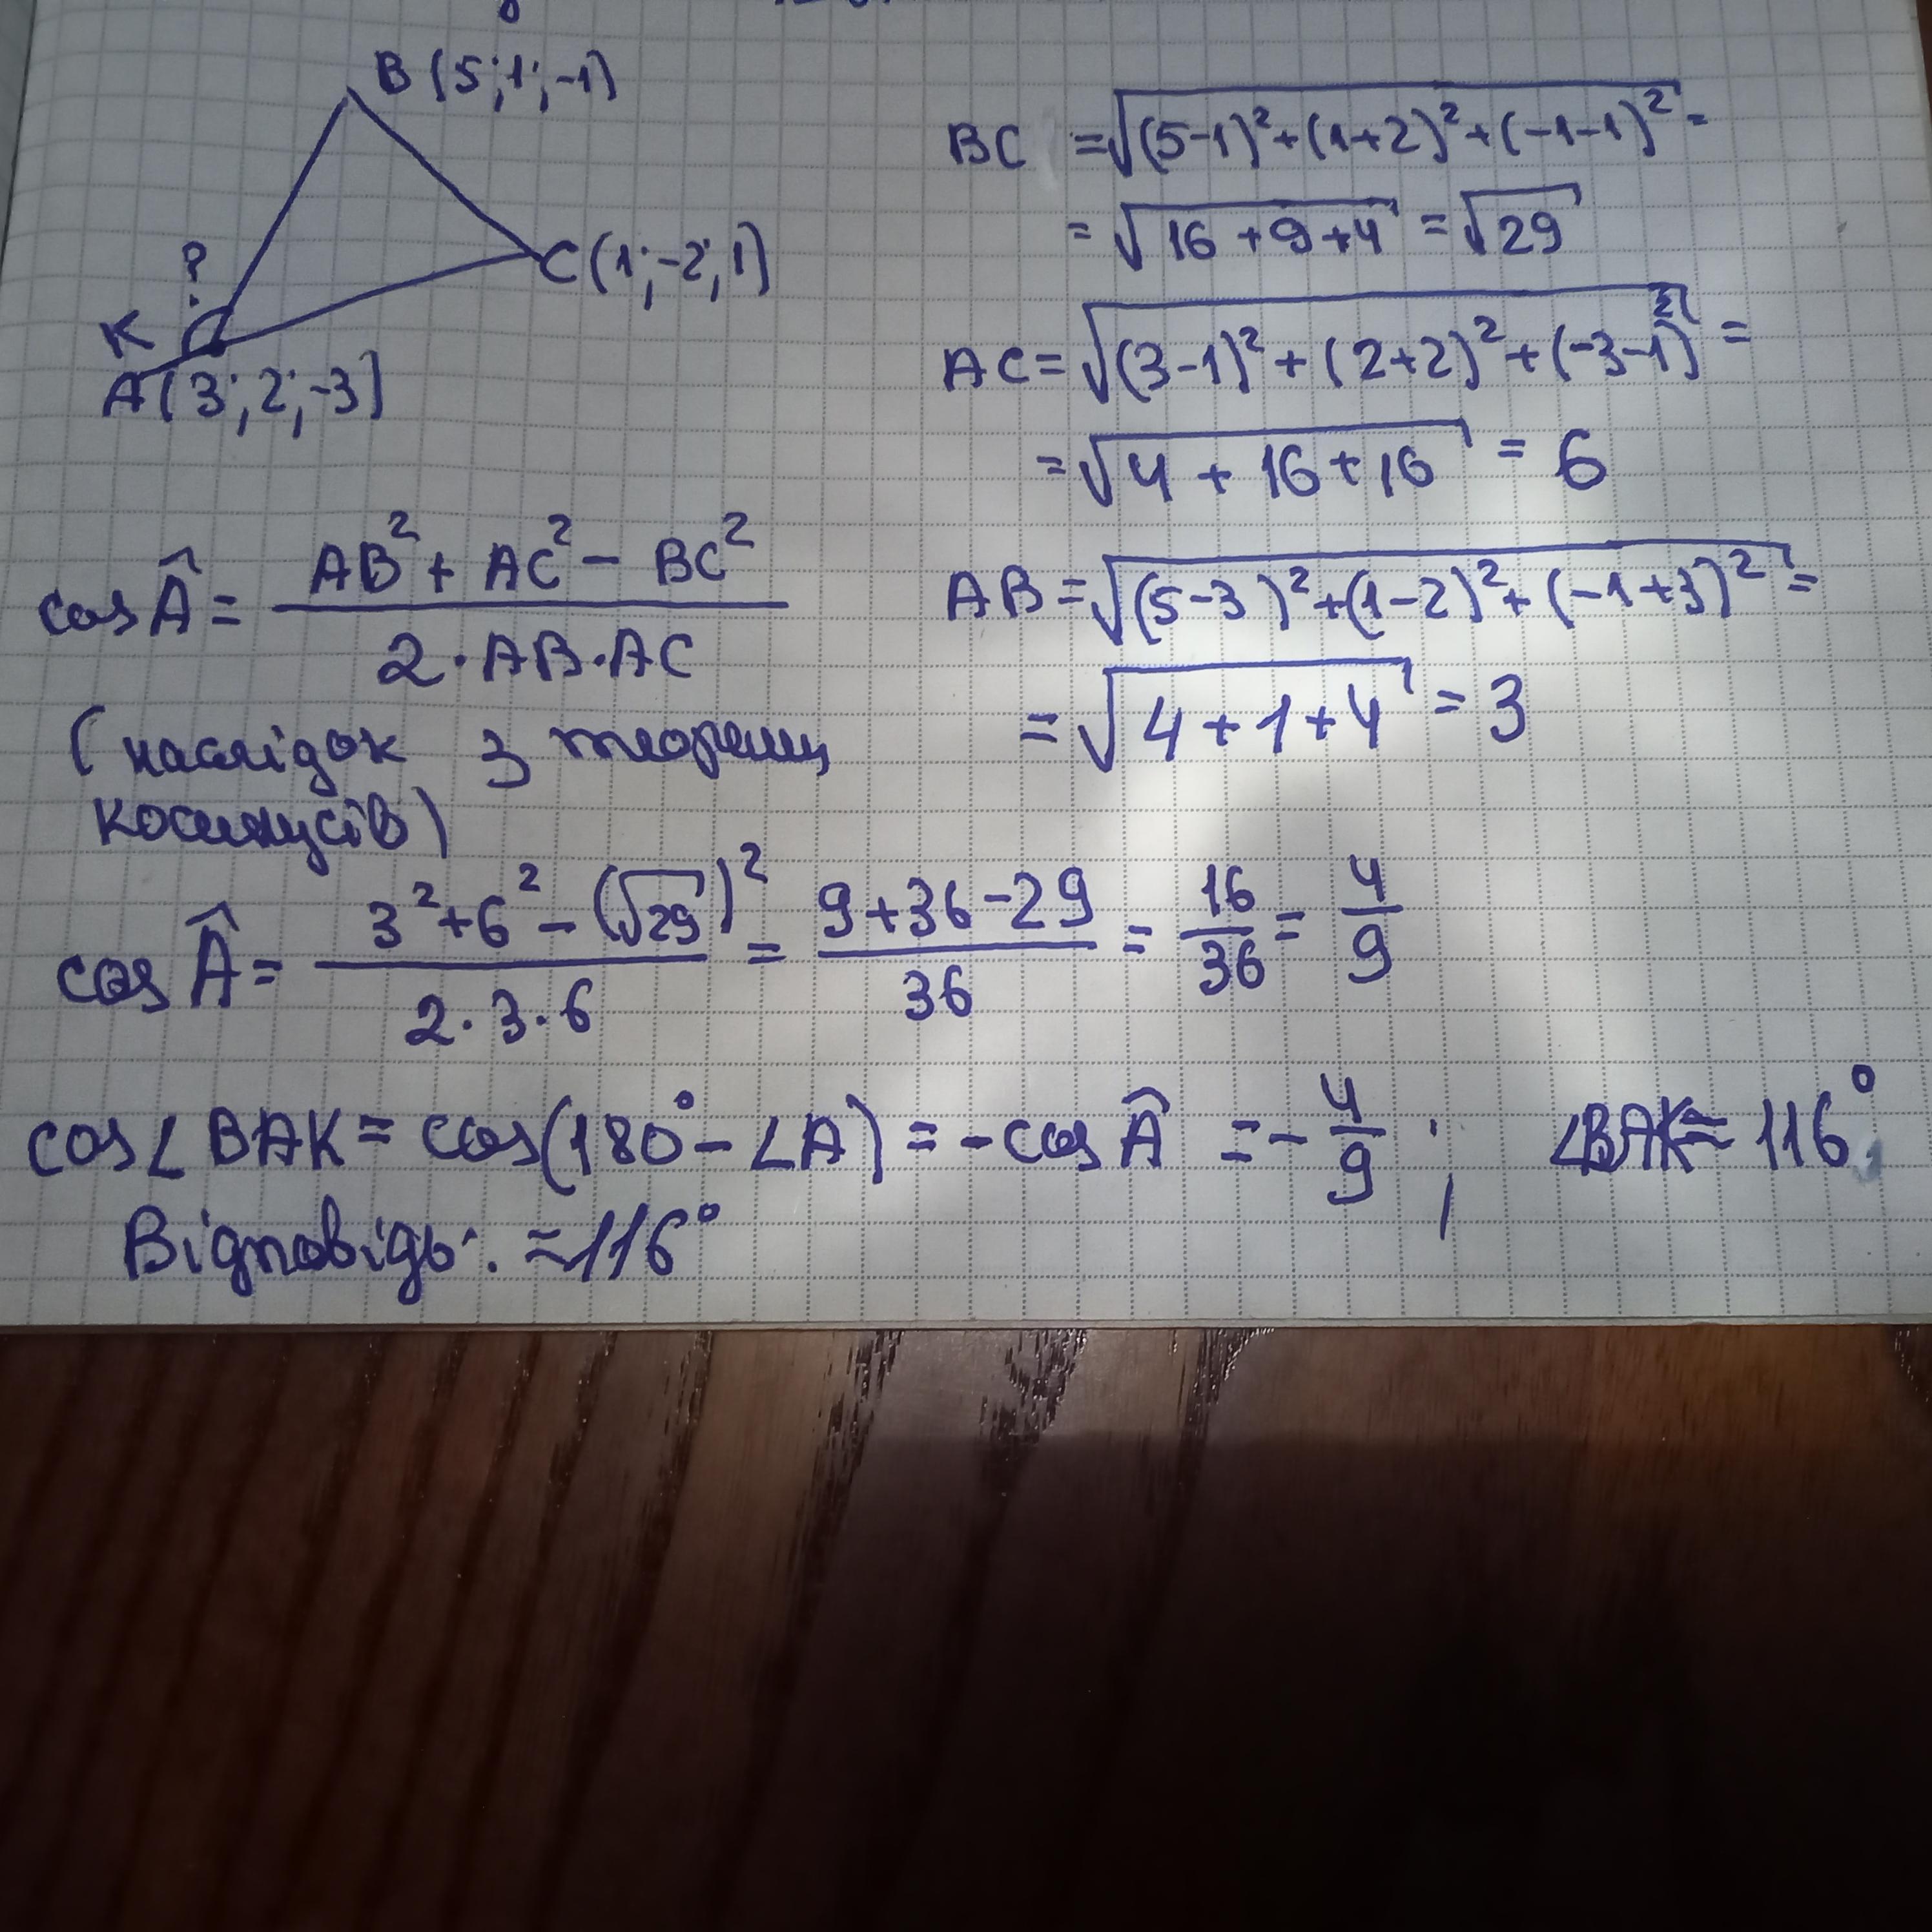 B(5;1;-1)
?
C(1;-2;1)
K
A(3;2;-3)
BC = √((5-1)²+(1+2)²+(-1-1)²) =
= √(16+9+4) = √29
AC = √((3-1)²+(2+2)²+(-3-1)²) =
= √(4+16+16) = 6
AB = √((5-3)²+(1-2)²+(-1+3)²) =
= √(4+1+4) = 3
cos Â = (AB²+AC²-BC²)/(2·AB·AC)
(наслідок з теореми
косинусів)
cos Â = (3²+6²-(√29)²)/(2·3·6) = (9+36-29)/36 = 16/36 = 4/9
cos∠BAK = cos(180°-∠A) = -cos Â = -4/9; ∠BAK ≈ 116°
Відповідь: ≈116°